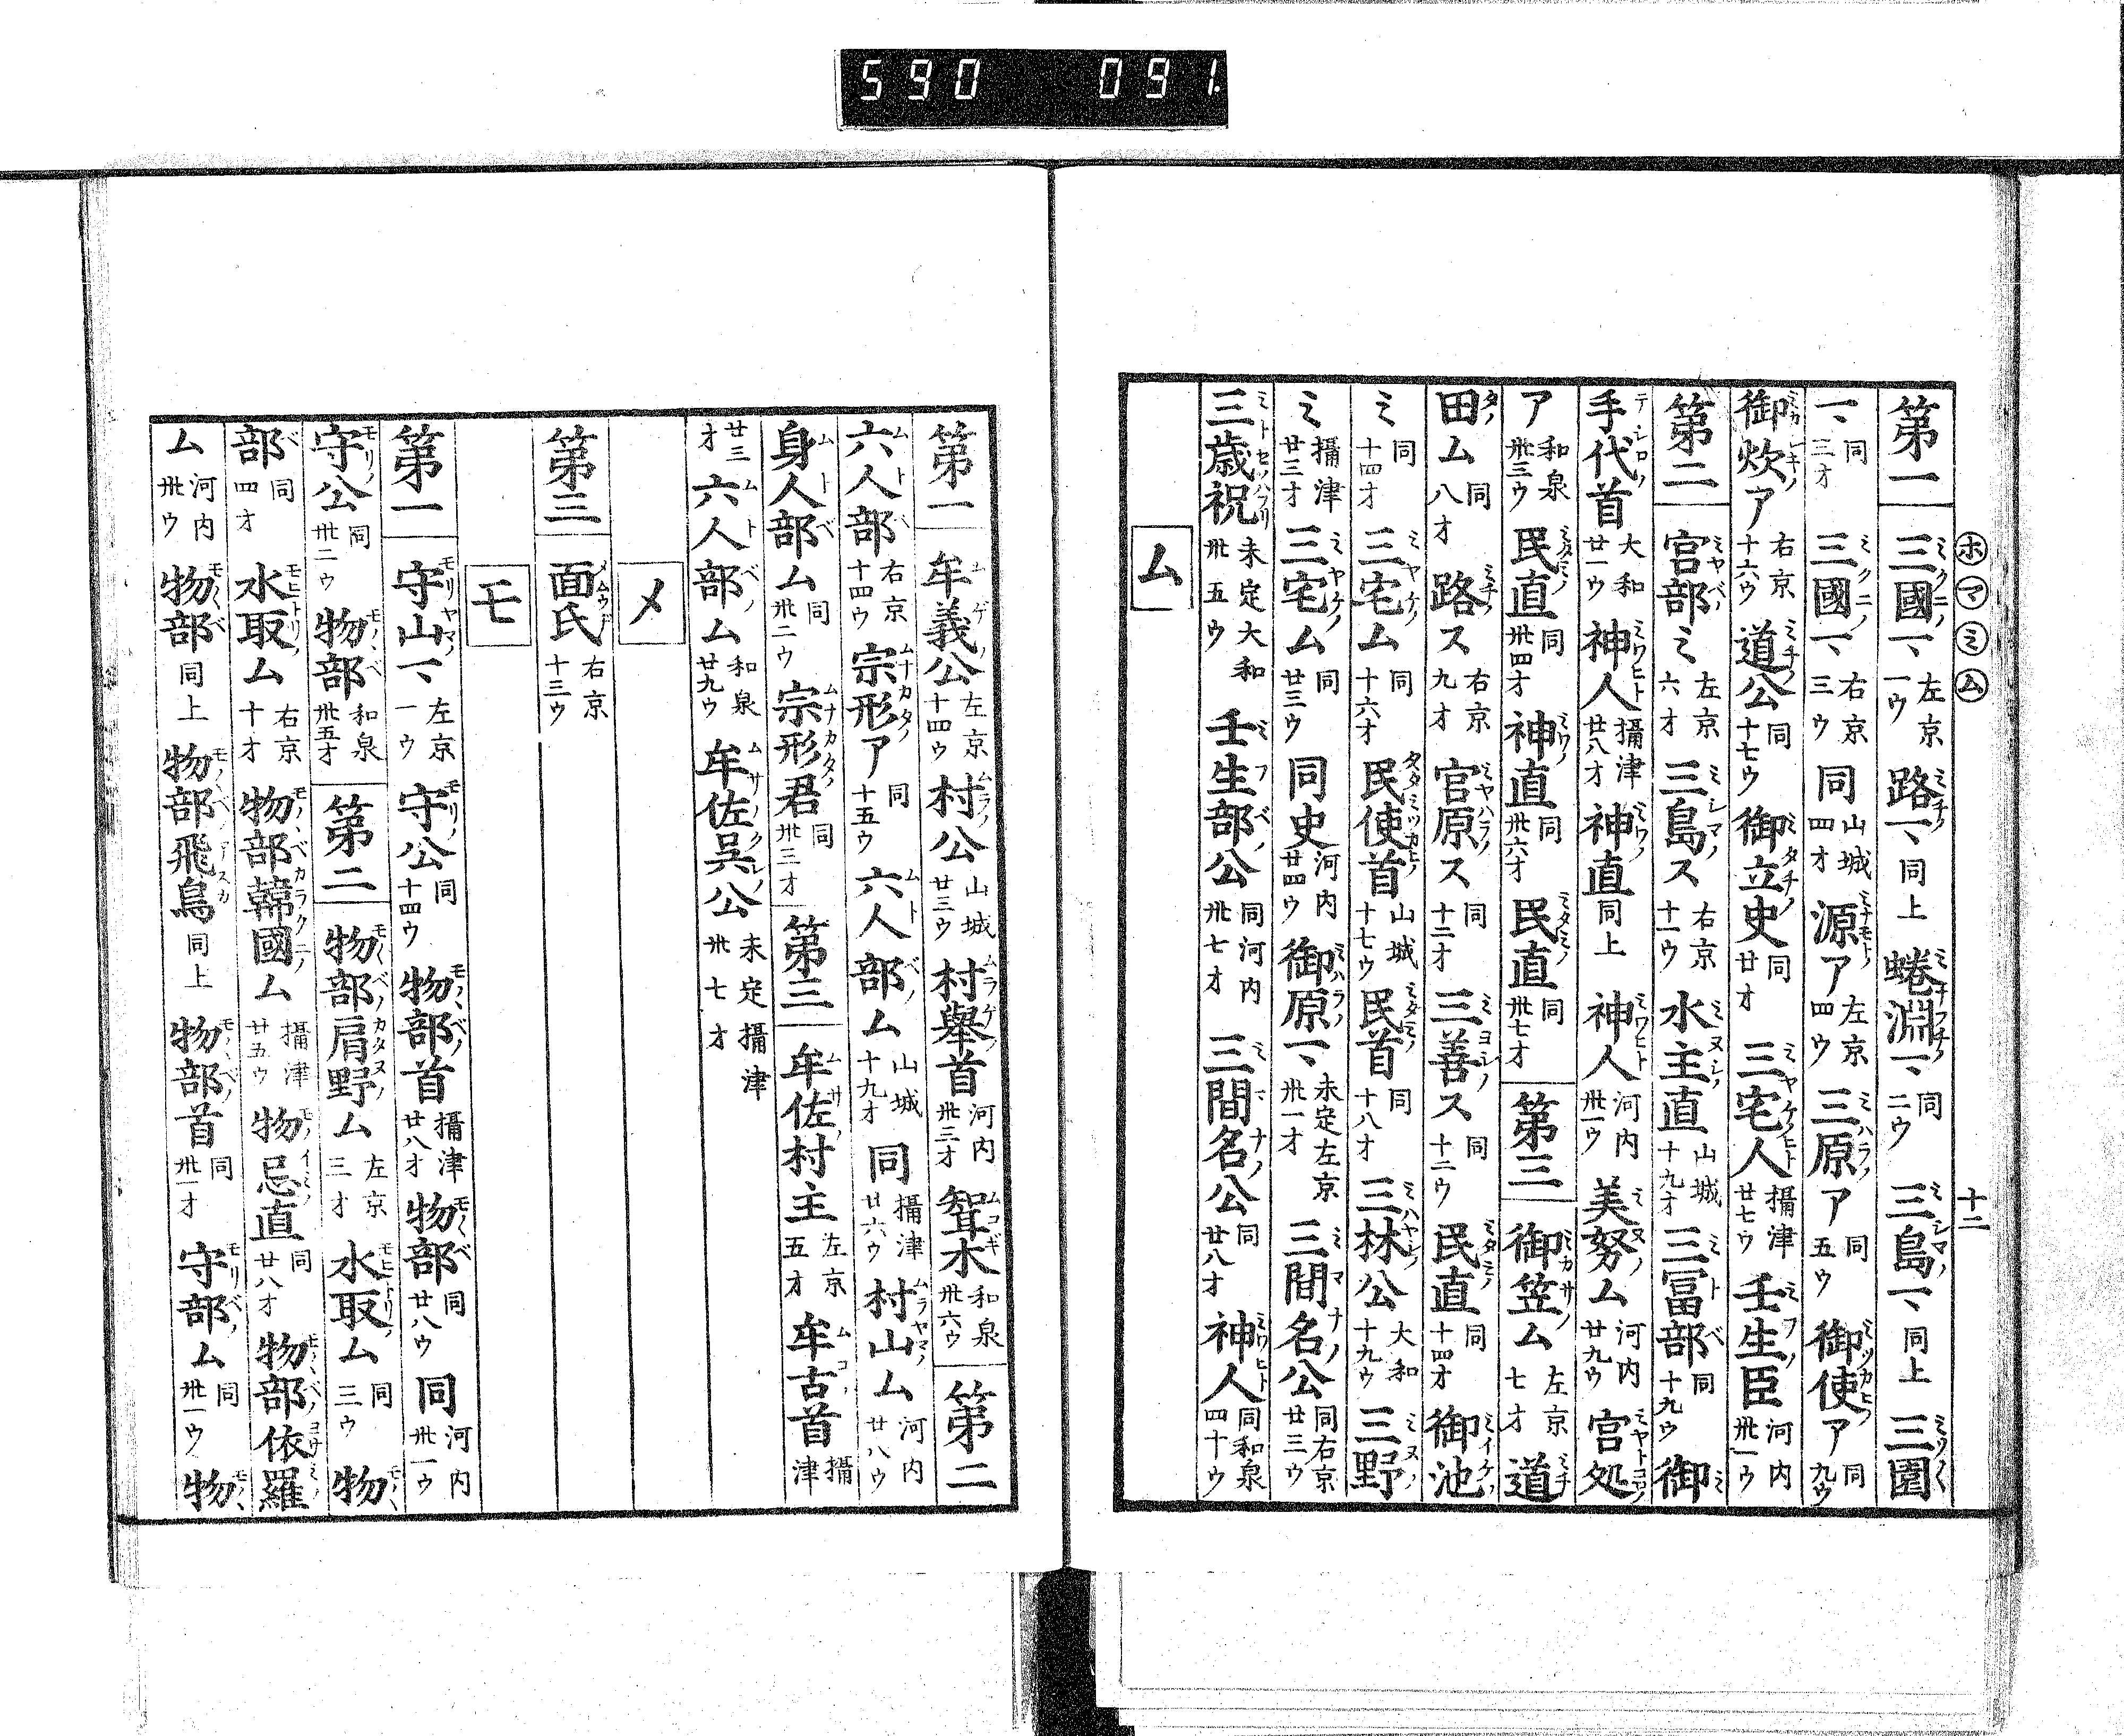 590 091.
ホマミム
十二
第一 三國一、左京一ウ 路一、同上 蜷淵一、同二ウ 三島一、同上 三園
一、同三オ 三國一、右京三ウ 同山城四オ 源ア左京四ウ 三原ア同五ウ 御使ア同九ウ
御炊ア右京十六ウ 道公同十七ウ 御立史同廿オ 三宅人攝津廿七ウ 壬生臣河内卅一ウ
第二 宮部ミ左京六オ 三島ス右京十一ウ 水主直山城十九オ 三冨部同十九ウ 御
手代首大和廿一ウ 神人攝津廿八オ 神直同上 神人河内卅一ウ 美努ム河内廿九ウ 宮処
ア和泉卅三ウ 民直同卅四オ 神直同卅六オ 民直同卅七オ 第三 御笠ム左京七オ 道
田ム同八オ 路ス右京九オ 宮原ス同十二オ 三善ス同十二ウ 民直同十四オ 御池
ミ同十四オ 三宅ム同十六オ 民使首山城十七ウ 民首同十八オ 三林公大和十九ウ 三野
ミ攝津廿三オ 三宅ム同廿三ウ 同史河内廿四ウ 御原一、未定左京卅一オ 三間名公同右京廿三ウ
三歳祝未定大和卅五ウ 壬生部公同河内卅七オ 三間名公同廿八オ 神人同和泉四十ウ
ム
第一 牟義公左京十四ウ 村公山城廿三ウ 村擧首河内卅三オ 聟木和泉卅六ウ 第二
六人部右京十四ウ 宗形ア同十五ウ 六人部ム山城十九オ 同攝津廿六ウ 村山ム河内廿八ウ
身人部ム同卅二ウ 宗形君同卅三オ 第三 牟佐村主左京五オ 牟古首攝津
廿三オ 六人部ム和泉廿九ウ 牟佐呉公未定攝津卅七オ
メ
第三 面氏右京十三ウ
モ
第一 守山一、左京一ウ 守公同十四ウ 物部首攝津廿八オ 物部同廿八ウ 同河内卅一ウ
守公同卅二ウ 物部和泉卅五オ 第二 物部肩野ム左京三オ 水取ム同三ウ 物
部同四オ 水取ム右京十オ 物部韓國ム攝津廿五ウ 物忌直同廿八オ 物部依羅
ム河内卅ウ 物部同上 物部飛鳥同上 物部首同卅一オ 守部ム同卅一ウ 物